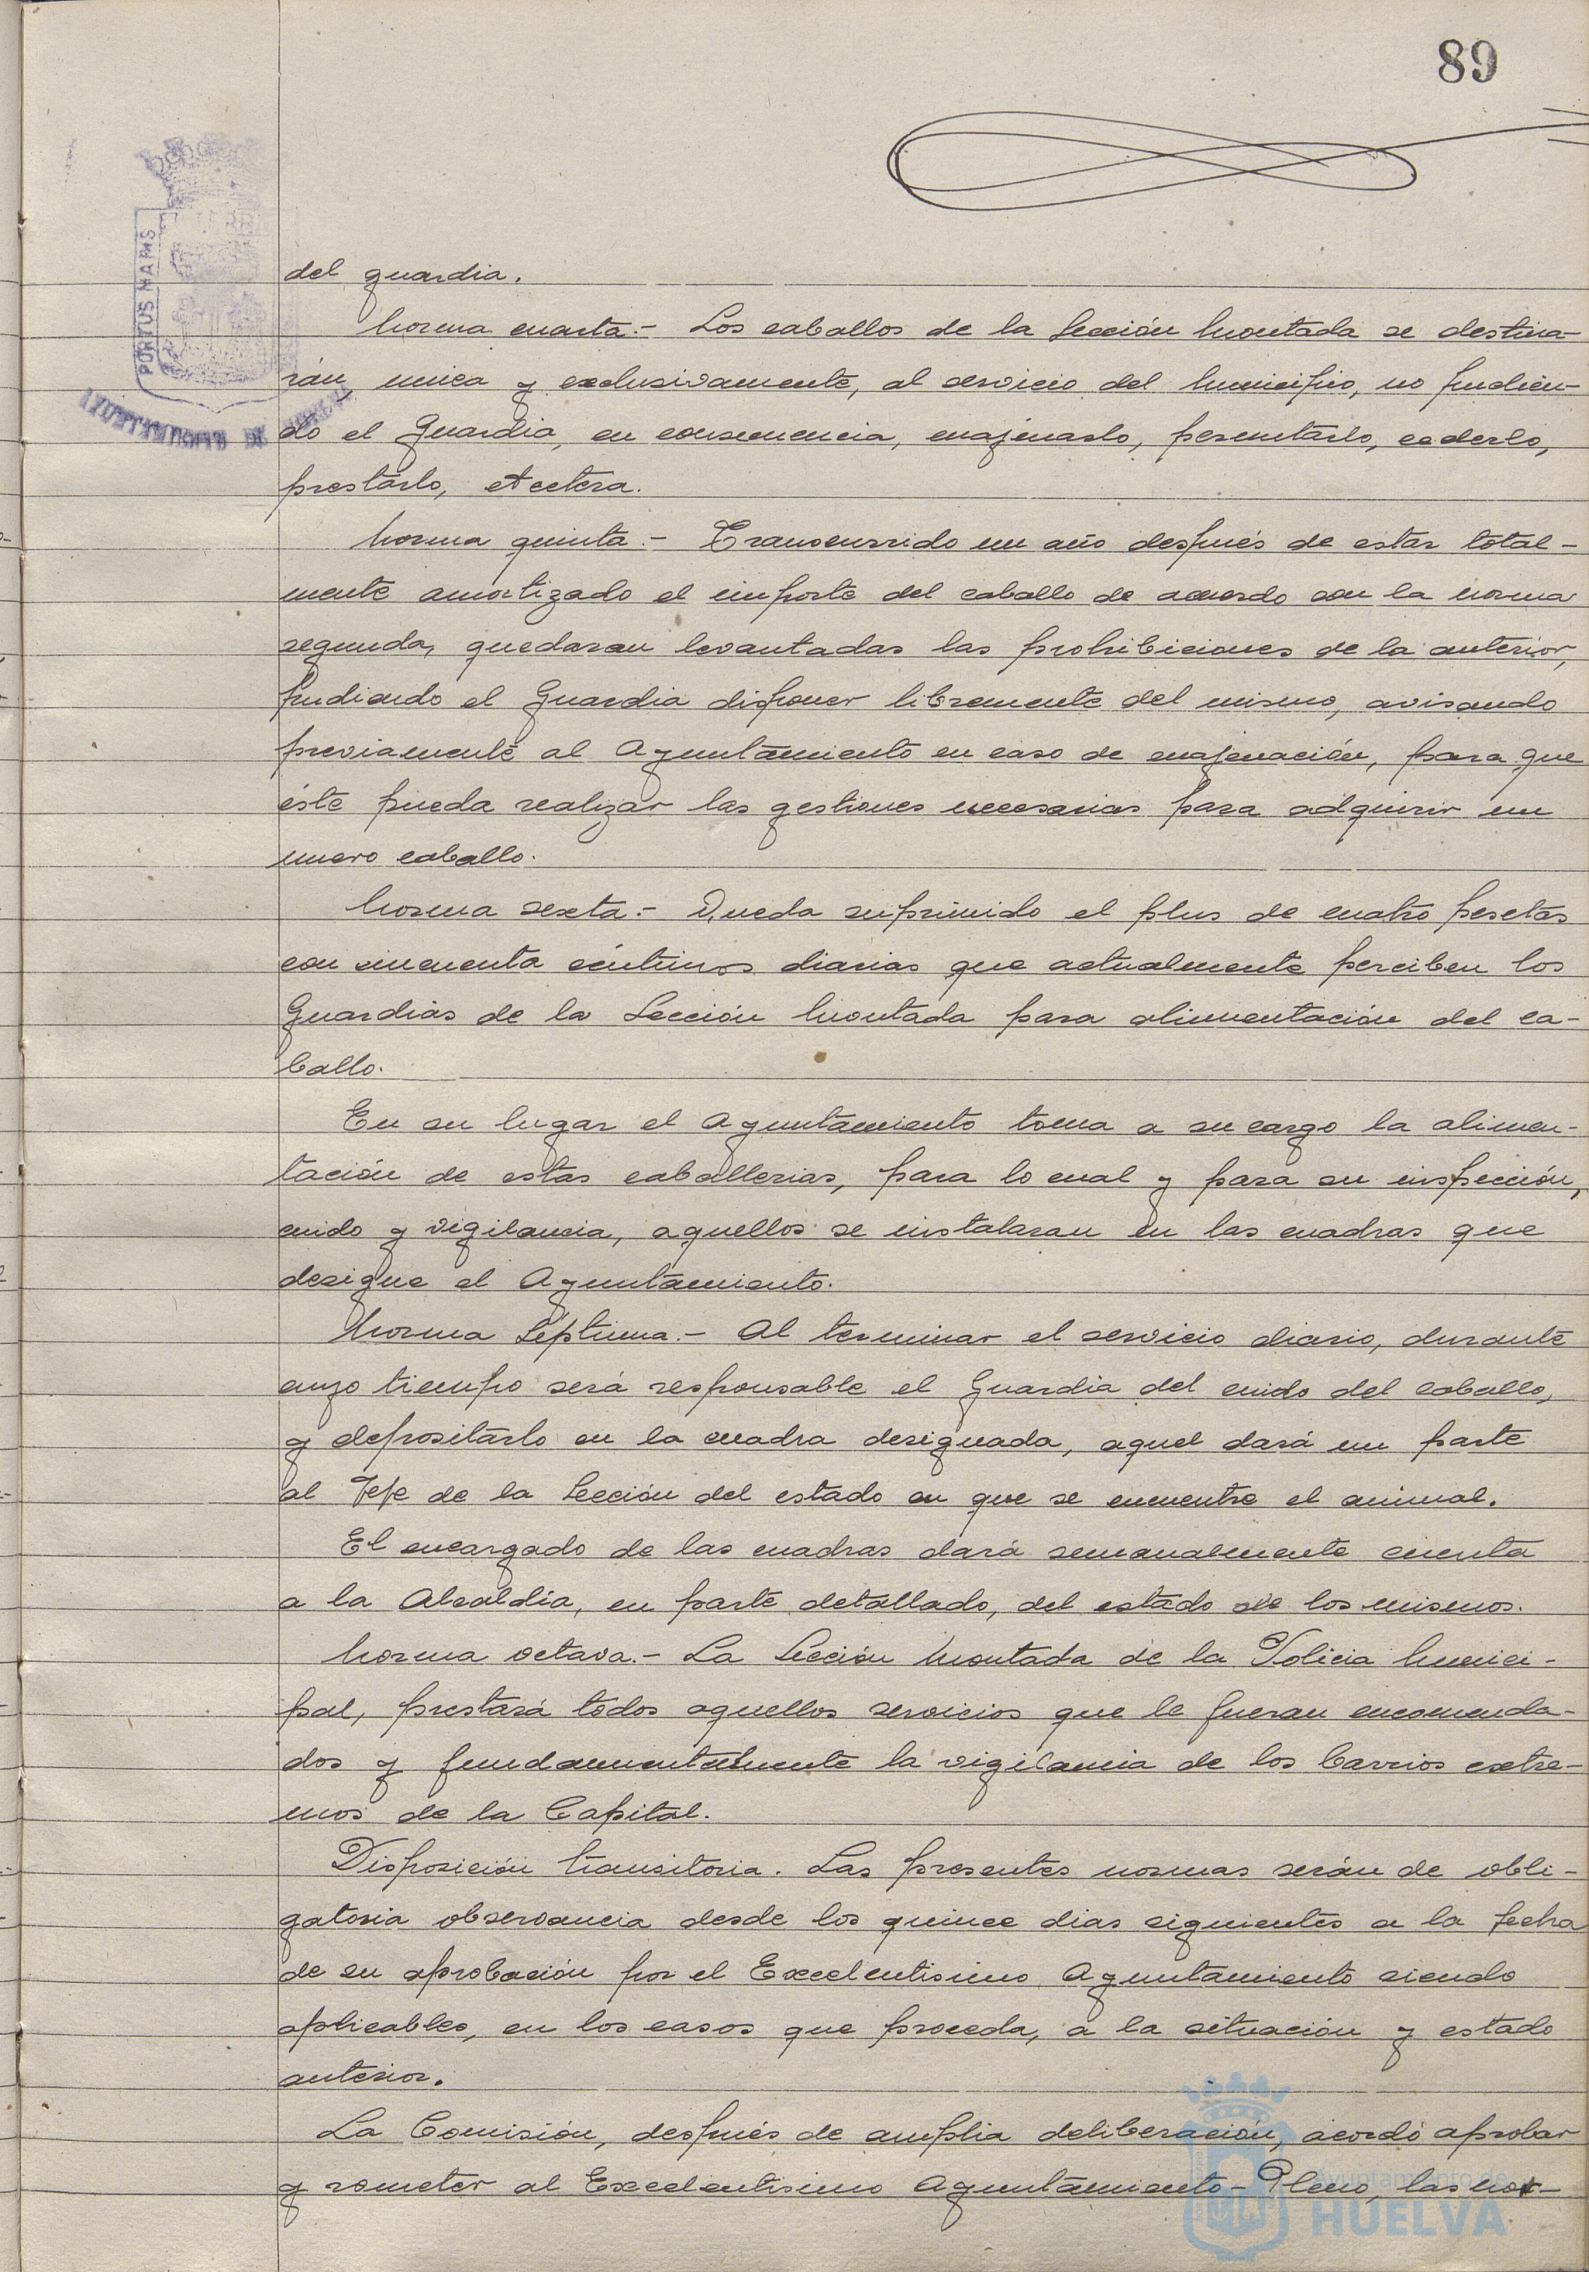 89
PORTUS MARIS
AYUNTAMIENTO DE
del guardia.
Norma cuarta.- Los caballos de la Sección Montada se destina-
rán, unica y exclusivamente, al servicio del Municipio, no pudien-
do el Guardia, en consecuencia, enajenarlo, permutarlo, cederlo,
prestarlo, etcetera.
Norma quinta.- Transcurrido un año después de estar total-
mente amortizado el importe del caballo de acuerdo con la norma
segunda, quedaran levantadas las prohibiciones de la anterior,
pudiendo el Guardia disponer libremente del mismo, avisando
previamente al Ayuntamiento en caso de enajenación, para que
éste pueda realizar las gestiones necesarias para adquirir un
nuevo caballo.
Norma sexta.- Queda suprimido el plus de cuatro pesetas
con cincuenta céntimos diarias que actualmente perciben los
Guardias de la Sección Montada para alimentación del ca-
ballo.
En su lugar el Ayuntamiento toma a su cargo la alimen-
tación de estas caballerias, para lo cual y para su inspección,
cuido y vigilancia, aquellos se instalaran en las cuadras que
designe el Ayuntamiento.
Norma Séptima.- Al terminar el servicio diario, durante
cuyo tiempo será responsable el Guardia del cuido del caballo,
y depositarlo en la cuadra designada, aquel dará un parte
al Jefe de la Sección del estado en que se encuentre el animal.
El encargado de las cuadras dará semanalmente cuenta
a la Alcaldía, en parte detallado, del estado de los mismos.
Norma octava.- La Sección Montada de la Policia Munici-
pal, prestará todos aquellos servicios que le fueran encomenda-
dos y fundamentalmente la vigilancia de los barrios extre-
mos de la Capital.
Disposición transitoria. Las presentes normas serán de obli-
gatoria observancia desde los quince dias siguientes a la fecha
de su aprobación por el Excelentisimo Ayuntamiento siendo
aplicables, en los casos que proceda, a la situación y estado
anterior.
La Comisión, después de amplia deliberación, acordó aprobar
y someter al Excelentisimo Ayuntamiento-Pleno, las nor-
Ayuntamiento de
HUELVA